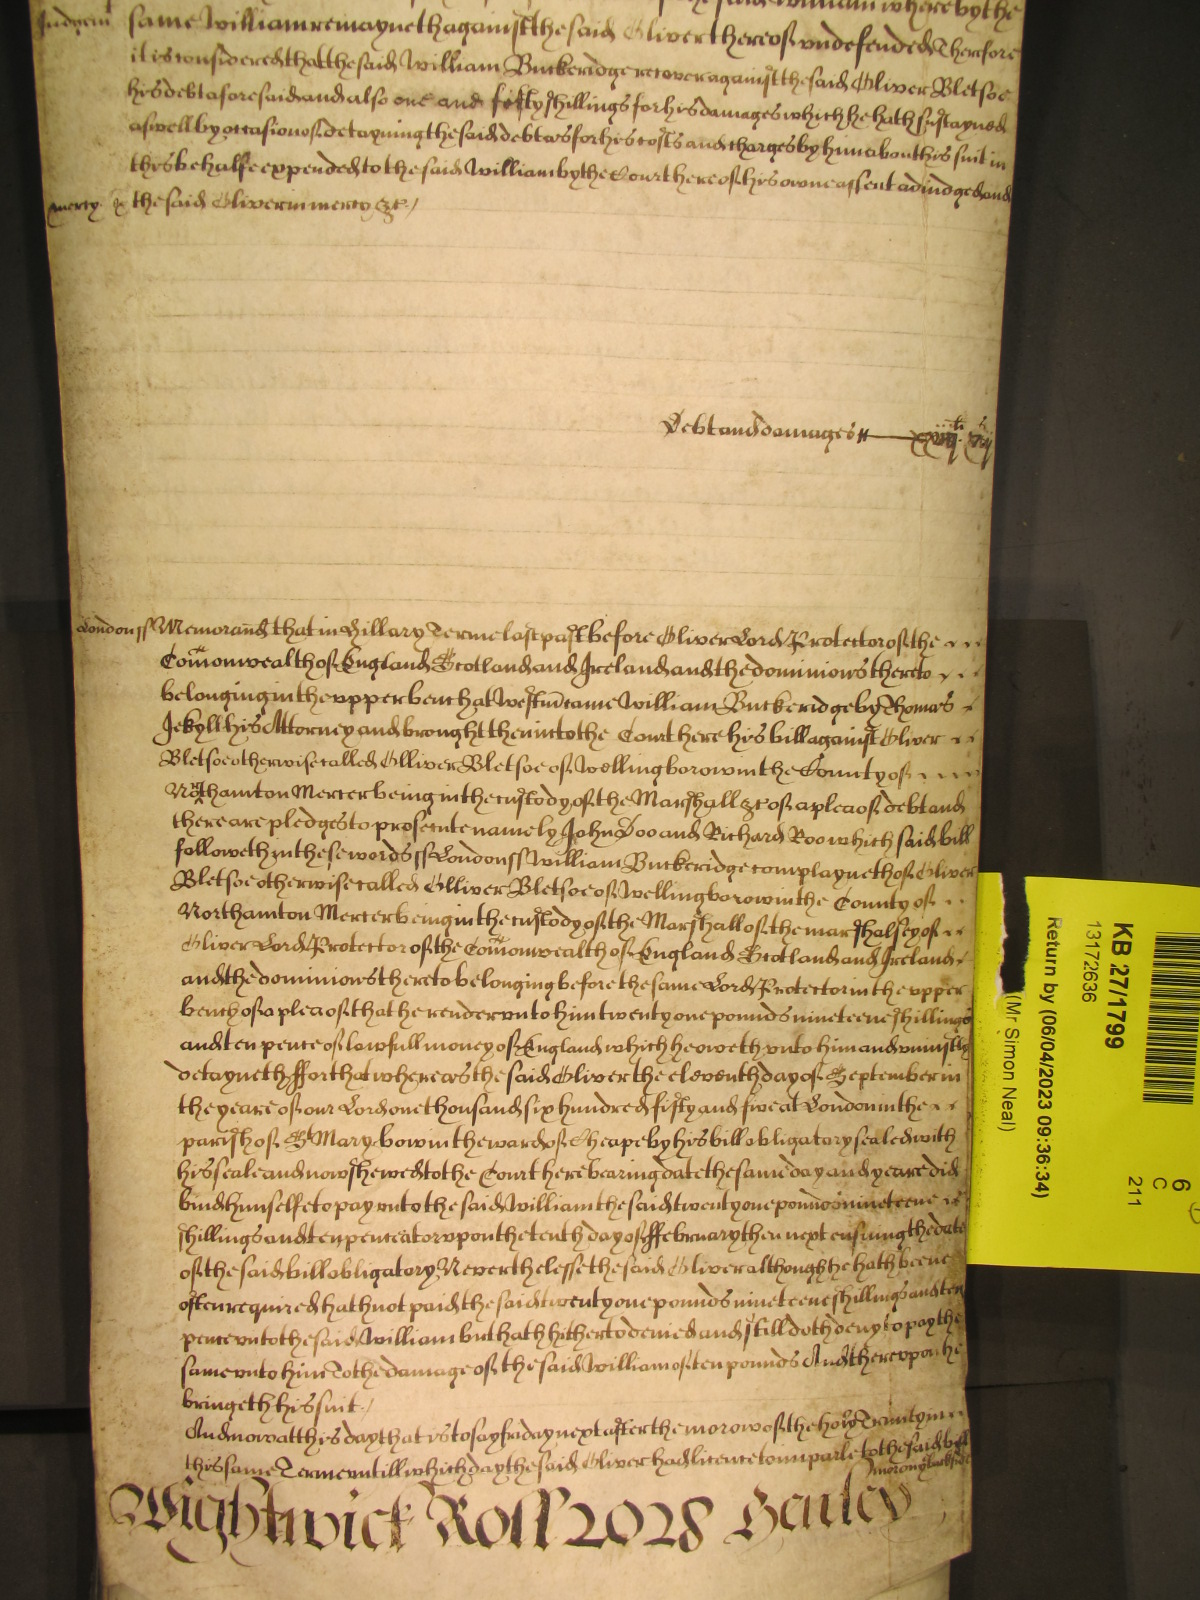 Judgemt same William remayneth against the said Oliver thereof undefended Therfore
it is considered that the said William Buckeridge recover against the said Oliver Bletsoe
his debt aforesaid and also one and fifty shillings for his damages which he hath susteyned
aswell by occasion of deteyning the said debt as for his costs and charges by him about his suit in
this behalfe expended to the said William by the Court here of his owne assent adiudged and
mercy the said Oliver in mercy &c /
Debt and damages
London ss Memorand that in Hillary Terme last past before Oliver Lord Protector of the
Comonwealth of England Scotland and Ireland and the dominions thereto
belonging in the upper bench at Westm came William Buckeridge by Thomas
Jekyll his Attorney and brought then into the Court here his bill against Oliver
Bletsoe otherwise called Olliver Bletsoe of Wellingborow in the County of
Northamton Mercer being in the custody of the Marshall &c of a plea of debt and
there are pledges to prosecute namely John Doo and Richard Roo which said bill
followeth in these words ss London ss William Buckeridge complayneth of Oliver
Bletsoe otherwise called Olliver Bletsoe of Wellingborow in the County of
Northamton Mercer being in the custody of the Marshall of the marshalsey of
Oliver Lord Protector of the Comonwealth of England Scotland and Ireland
and the dominions thereto belonging before the same Lord Protector in the upper
bench of a plea of that he render unto him twenty one pounds nineteene shillings
and ten pence of lawfull money of England which he oweth unto him and uniustly
detayneth ffor that whereas the said Oliver the eleventh day of September in
the yeare of our Lord one thousand six hundred fifty and five at London in the
parish of St Mary bow in the ward of Cheape by his bill obligatory sealed with
his seale and now shewed to the Court here bearing date the same day and yeare did
bind himselfe to pay unto the said William the said twenty one pounds nineteene
shillings and ten pence at or upon the tenth day of ffebruary then next ensuing the date
of the said bill obligatory Neverthelesse the said Oliver although he hath beene
often required hath not paid the said twenty one pounds nineteene shillings and ten
pence unto the said William but hath hitherto denied and still doth deny to pay the
same unto him To the damage of the said William of ten pounds And thereupon he
bringeth his suit /
And now at this day that is to say friday next after the morow of the holy Trinity in
this same Terme untill which day the said Oliver had licence to imparle to the said bill
Wightwick Roll 2028 Henley
KB 27/1799
13172636
Return by (06/04/2023 09:36:34)
(Mr Simon Neal)
6
C
211